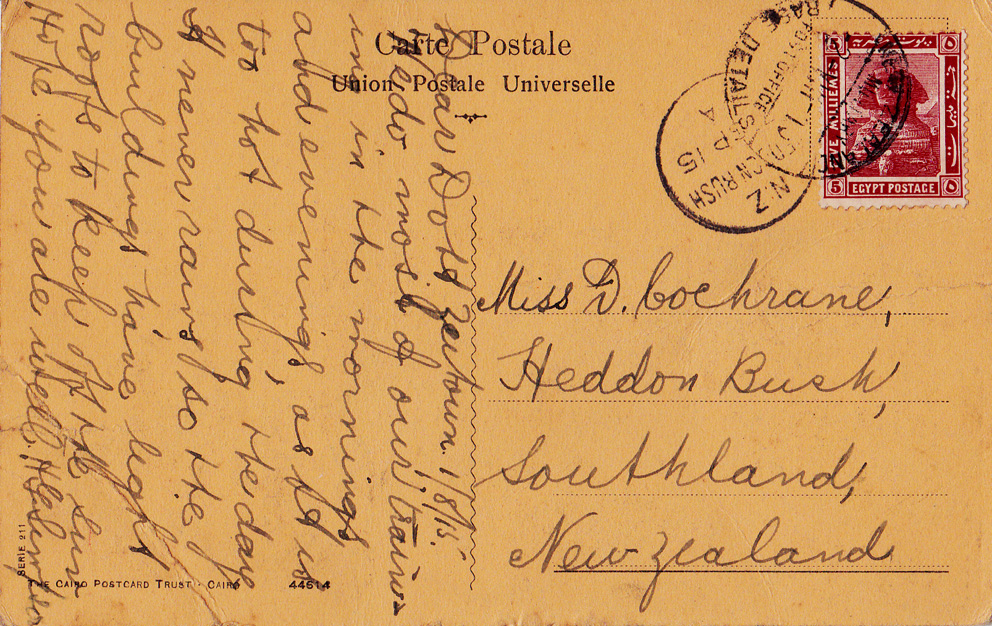 Carte Postale
Union Postale Universelle
5 5
FIVE MILLIEMES
EGYPT POSTAGE
5 ٥
BASE DETAILS
POST OFFICE
HEDDON BUSH
A
SEP 15
N.Z
Zeitoun. 1/8/15.
Dear Dots
We do most of our train-
ing in the mornings
and evenings as it is
too hot during the day
It never rains so the
buildings have light
roofs to keep off the sun
Hope you are well.
Miss D. Cochrane,
Heddon Bush,
Southland,
New Zealand
SERIE 211
THE CAIRO POSTCARD TRUST · CAIRO
44614